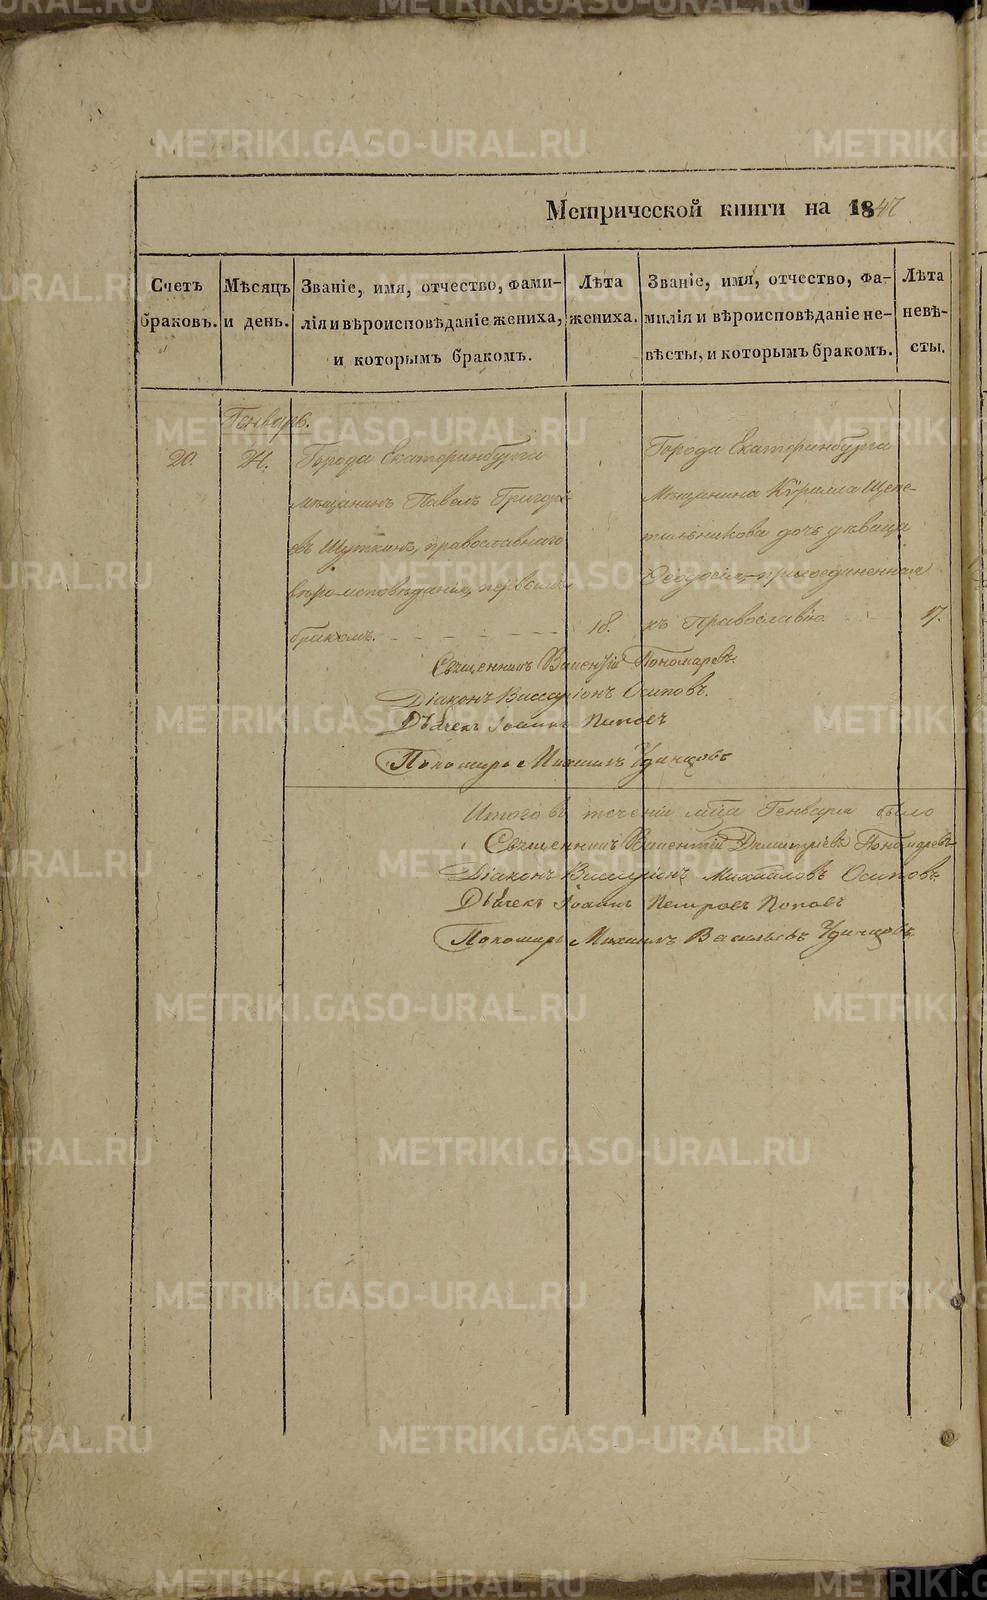 Метрической книги на 1847
Счетъ браковъ.
Мѣсяцъ и день.
Званіе, имя, отчество, фами-
лія и вѣроисповѣданіе жениха,
и которымъ бракомъ.
Лѣта жениха.
Званіе, имя, отчество, фа-
милія и вѣроисповѣданіе не-
вѣсты, и которымъ бракомъ.
Лѣта невѣ-
сты.
Генварь.
20. 24.
Города Екатеринбурга
мѣщанинъ Павелъ Григорь-
евъ Шуткинъ, православнаго
вѣроисповѣданія, первымъ
бракомъ. 18.
Города Екатеринбурга
Мѣщанина Кирилла Щепе-
тильникова дочь дѣвица
Ѳеодосія, присоединенная
къ Православію 17.
Священникъ Пономаревъ.
Діаконъ Виссаріонъ Осиповъ.
Дьячекъ Іоаннъ Поповъ
Пономарь Михаилъ Удинцовъ
Итого въ теченіи мца Генваря было
Священникъ Димитріевъ Пономаревъ
Діаконъ Виссаріонъ Михайловъ Осиповъ.
Дьячекъ Іоаннъ Петровъ Поповъ
Пономарь Михаилъ Васильевъ Удинцовъ.
METRIKI.GASO-URAL.RU